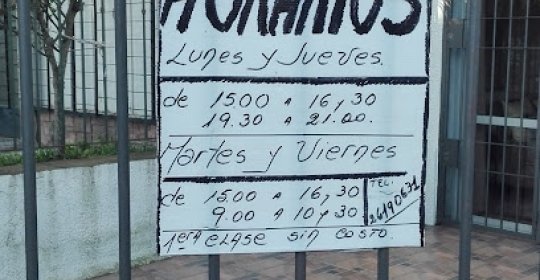 HORARIOS
Lunes y Jueves.
de 15.00 a 16,30
19.30 a 21.00.
Martes y Viernes
de 15.00 a 16,30
9.00 a 10y30
TEL:
26190631
1era clase sin costo